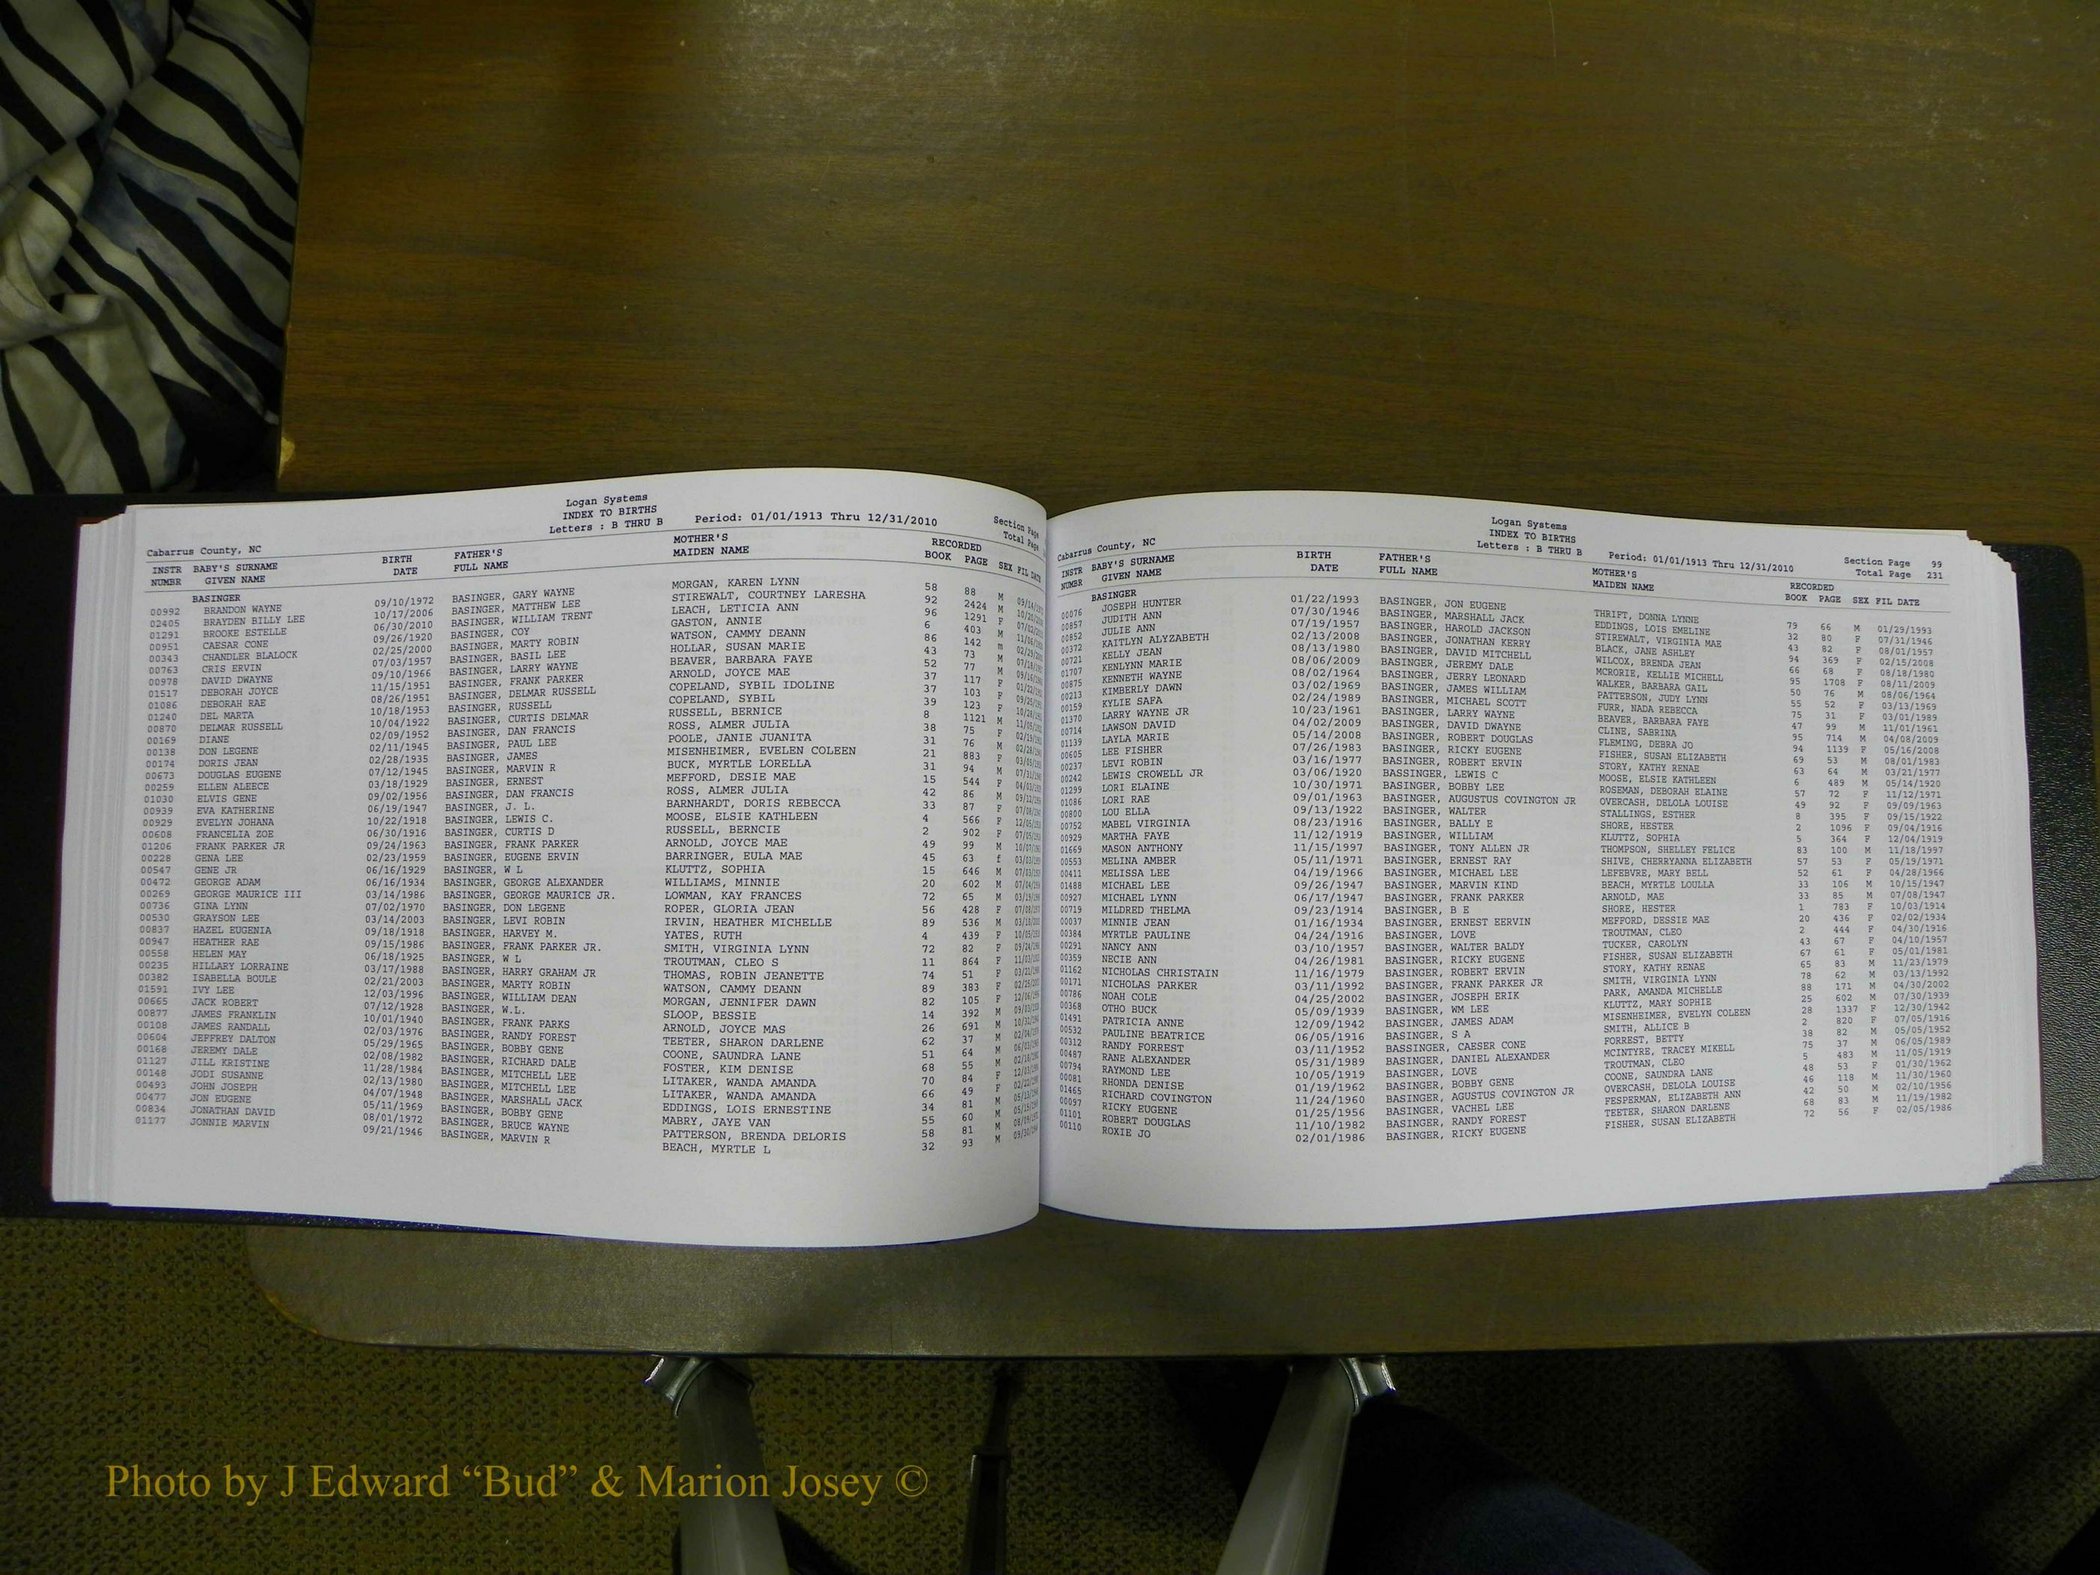 Logan Systems
INDEX TO BIRTHS
Letters : B THRU B Period: 01/01/1913 Thru 12/31/2010
Section Page
Total Page
Cabarrus County, NC
INSTR NUMBR BABY'S SURNAME GIVEN NAME BIRTH DATE FATHER'S FULL NAME MOTHER'S MAIDEN NAME RECORDED BOOK PAGE SEX FIL DATE
BASINGER
00992 BRANDON WAYNE 09/10/1972 BASINGER, GARY WAYNE MORGAN, KAREN LYNN 58 88 M
02405 BRAYDEN BILLY LEE 10/17/2006 BASINGER, MATTHEW LEE STIREWALT, COURTNEY LARESHA 92 2424 M
01291 BROOKE ESTELLE 06/30/2010 BASINGER, WILLIAM TRENT LEACH, LETICIA ANN 96 1291 F
00951 CAESAR CONE 09/26/1920 BASINGER, COY GASTON, ANNIE 6 403 M
00343 CHANDLER BLALOCK 02/25/2000 BASINGER, MARTY ROBIN WATSON, CAMMY DEANN 86 142 m
00763 CRIS ERVIN 07/03/1957 BASINGER, BASIL LEE HOLLAR, SUSAN MARIE 43 73 M
00978 DAVID DWAYNE 09/10/1966 BASINGER, LARRY WAYNE BEAVER, BARBARA FAYE 52 77 M
01517 DEBORAH JOYCE 11/15/1951 BASINGER, FRANK PARKER ARNOLD, JOYCE MAE 37 117 F
01086 DEBORAH RAE 08/26/1951 BASINGER, DELMAR RUSSELL COPELAND, SYBIL IDOLINE 37 103 F
01240 DEL MARTA 10/18/1953 BASINGER, RUSSELL COPELAND, SYBIL 39 123 F
00870 DELMAR RUSSELL 10/04/1922 BASINGER, CURTIS DELMAR RUSSELL, BERNICE 8 1121 M
00169 DIANE 02/09/1952 BASINGER, DAN FRANCIS ROSS, ALMER JULIA 38 75 F
00138 DON LEGENE 02/11/1945 BASINGER, PAUL LEE POOLE, JANIE JUANITA 31 76 M
00174 DORIS JEAN 02/28/1935 BASINGER, JAMES MISENHEIMER, EVELEN COLEEN 21 883 F
00673 DOUGLAS EUGENE 07/12/1945 BASINGER, MARVIN R BUCK, MYRTLE LORELLA 31 94 M
00259 ELLEN ALEECE 03/18/1929 BASINGER, ERNEST MEFFORD, DESIE MAE 15 544 F
01030 ELVIS GENE 09/02/1956 BASINGER, DAN FRANCIS ROSS, ALMER JULIA 42 86 M
00939 EVA KATHERINE 06/19/1947 BASINGER, J. L. BARNHARDT, DORIS REBECCA 33 87 F
00929 EVELYN JOHANA 10/22/1918 BASINGER, LEWIS C. MOOSE, ELSIE KATHLEEN 4 566 F
00608 FRANCELIA ZOE 06/30/1916 BASINGER, CURTIS D RUSSELL, BERNCIE 2 902 F
01206 FRANK PARKER JR 09/24/1963 BASINGER, FRANK PARKER ARNOLD, JOYCE MAE 49 99 M
00228 GENA LEE 02/23/1959 BASINGER, EUGENE ERVIN BARRINGER, EULA MAE 45 63 f
00547 GENE JR 06/16/1929 BASINGER, W L KLUTTZ, SOPHIA 15 646 M
00472 GEORGE ADAM 06/16/1934 BASINGER, GEORGE ALEXANDER WILLIAMS, MINNIE 20 602 M
00269 GEORGE MAURICE III 03/14/1986 BASINGER, GEORGE MAURICE JR. LOWMAN, KAY FRANCES 72 65 M
00736 GINA LYNN 07/02/1970 BASINGER, DON LEGENE ROPER, GLORIA JEAN 56 428 F
00530 GRAYSON LEE 03/14/2003 BASINGER, LEVI ROBIN IRVIN, HEATHER MICHELLE 89 536 M
00837 HAZEL EUGENIA 09/18/1918 BASINGER, HARVEY M. YATES, RUTH 4 439 F
00947 HEATHER RAE 09/15/1986 BASINGER, FRANK PARKER JR. SMITH, VIRGINIA LYNN 72 82 F
00558 HELEN MAY 06/18/1925 BASINGER, W L TROUTMAN, CLEO S 11 864 F
00235 HILLARY LORRAINE 03/17/1988 BASINGER, HARRY GRAHAM JR THOMAS, ROBIN JEANETTE 74 51 F
00382 ISABELLA BOULE 02/21/2003 BASINGER, MARTY ROBIN WATSON, CAMMY DEANN 89 383 F
01591 IVY LEE 12/03/1996 BASINGER, WILLIAM DEAN MORGAN, JENNIFER DAWN 82 105 F
00665 JACK ROBERT 07/12/1928 BASINGER, W.L. SLOOP, BESSIE 14 392 M
00877 JAMES FRANKLIN 10/01/1940 BASINGER, FRANK PARKS ARNOLD, JOYCE MAS 26 691 M
00108 JAMES RANDALL 02/03/1976 BASINGER, RANDY FOREST TEETER, SHARON DARLENE 62 37 M
00604 JEFFREY DALTON 05/29/1965 BASINGER, BOBBY GENE COONE, SAUNDRA LANE 51 64 M
00168 JEREMY DALE 02/08/1982 BASINGER, RICHARD DALE FOSTER, KIM DENISE 68 55 M
01127 JILL KRISTINE 11/28/1984 BASINGER, MITCHELL LEE LITAKER, WANDA AMANDA 70 84 F
00148 JODI SUSANNE 02/13/1980 BASINGER, MITCHELL LEE LITAKER, WANDA AMANDA 66 49 F
00493 JOHN JOSEPH 04/07/1948 BASINGER, MARSHALL JACK EDDINGS, LOIS ERNESTINE 34 81 M
00477 JON EUGENE 05/11/1969 BASINGER, BOBBY GENE MABRY, JAYE VAN 55 60 M
00834 JONATHAN DAVID 08/01/1972 BASINGER, BRUCE WAYNE PATTERSON, BRENDA DELORIS 58 81 M
01177 JONNIE MARVIN 09/21/1946 BASINGER, MARVIN R BEACH, MYRTLE L 32 93 M
Logan Systems
INDEX TO BIRTHS
Letters : B THRU B Period: 01/01/1913 Thru 12/31/2010
Section Page 99
Total Page 231
Cabarrus County, NC
INSTR NUMBR BABY'S SURNAME GIVEN NAME BIRTH DATE FATHER'S FULL NAME MOTHER'S MAIDEN NAME RECORDED BOOK PAGE SEX FIL DATE
BASINGER
00076 JOSEPH HUNTER 01/22/1993 BASINGER, JON EUGENE THRIFT, DONNA LYNNE 79 66 M 01/29/1993
00857 JUDITH ANN 07/30/1946 BASINGER, MARSHALL JACK EDDINGS, LOIS EMELINE 32 80 F 07/31/1946
00852 JULIE ANN 07/19/1957 BASINGER, HAROLD JACKSON STIREWALT, VIRGINIA MAE 43 82 F 08/01/1957
00372 KAITLYN ALYZABETH 02/13/2008 BASINGER, JONATHAN KERRY BLACK, JANE ASHLEY 94 369 F 02/15/2008
00721 KELLY JEAN 08/13/1980 BASINGER, DAVID MITCHELL WILCOX, BRENDA JEAN 66 68 F 08/18/1980
01707 KENLYNN MARIE 08/06/2009 BASINGER, JEREMY DALE MCRORIE, KELLIE MICHELL 95 1708 F 08/11/2009
00875 KENNETH WAYNE 08/02/1964 BASINGER, JERRY LEONARD WALKER, BARBARA GAIL 50 76 M 08/06/1964
00213 KIMBERLY DAWN 03/02/1969 BASINGER, JAMES WILLIAM PATTERSON, JUDY LYNN 55 52 F 03/13/1969
00159 KYLIE SAFA 02/24/1989 BASINGER, MICHAEL SCOTT FURR, NADA REBECCA 75 31 F 03/01/1989
01370 LARRY WAYNE JR 10/23/1961 BASINGER, LARRY WAYNE BEAVER, BARBARA FAYE 47 99 M 11/01/1961
00714 LAWSON DAVID 04/02/2009 BASINGER, DAVID DWAYNE CLINE, SABRINA 95 714 M 04/08/2009
01139 LAYLA MARIE 05/14/2008 BASINGER, ROBERT DOUGLAS FLEMING, DEBRA JO 94 1139 F 05/16/2008
00605 LEE FISHER 07/26/1983 BASINGER, RICKY EUGENE FISHER, SUSAN ELIZABETH 69 53 M 08/01/1983
00237 LEVI ROBIN 03/16/1977 BASINGER, ROBERT ERVIN STORY, KATHY RENAE 63 64 M 03/21/1977
00242 LEWIS CROWELL JR 03/06/1920 BASSINGER, LEWIS C MOOSE, ELSIE KATHLEEN 6 489 M 05/14/1920
01299 LORI ELAINE 10/30/1971 BASINGER, BOBBY LEE ROSEMAN, DEBORAH ELAINE 57 72 F 11/12/1971
01086 LORI RAE 09/01/1963 BASINGER, AUGUSTUS COVINGTON JR OVERCASH, DELOLA LOUISE 49 92 F 09/09/1963
00800 LOU ELLA 09/13/1922 BASINGER, WALTER STALLINGS, ESTHER 8 395 F 09/15/1922
00752 MABEL VIRGINIA 08/23/1916 BASINGER, BALLY E SHORE, HESTER 2 1096 F 09/04/1916
00929 MARTHA FAYE 11/12/1919 BASINGER, WILLIAM KLUTTZ, SOPHIA 5 364 F 12/04/1919
01669 MASON ANTHONY 11/15/1997 BASINGER, TONY ALLEN JR THOMPSON, SHELLEY FELICE 83 100 M 11/18/1997
00553 MELINA AMBER 05/11/1971 BASINGER, ERNEST RAY SHIVE, CHERRYANNA ELIZABETH 57 53 F 05/19/1971
00411 MELISSA LEE 04/19/1966 BASINGER, MICHAEL LEE LEFEBVRE, MARY BELL 52 61 F 04/28/1966
01488 MICHAEL LEE 09/26/1947 BASINGER, MARVIN KIND BEACH, MYRTLE LOULLA 33 106 M 10/15/1947
00927 MICHAEL LYNN 06/17/1947 BASINGER, FRANK PARKER ARNOLD, MAE 33 85 M 07/08/1947
00719 MILDRED THELMA 09/23/1914 BASINGER, B E SHORE, HESTER 1 783 F 10/03/1914
00037 MINNIE JEAN 01/16/1934 BASINGER, ERNEST EERVIN MEFFORD, DESSIE MAE 20 436 F 02/02/1934
00384 MYRTLE PAULINE 04/24/1916 BASINGER, LOVE TROUTMAN, CLEO 2 444 F 04/30/1916
00291 NANCY ANN 03/10/1957 BASINGER, WALTER BALDY TUCKER, CAROLYN 43 67 F 04/10/1957
00359 NECIE ANN 04/26/1981 BASINGER, RICKY EUGENE FISHER, SUSAN ELIZABETH 67 61 F 05/01/1981
01162 NICHOLAS CHRISTAIN 11/16/1979 BASINGER, ROBERT ERVIN STORY, KATHY RENAE 65 83 M 11/23/1979
00171 NICHOLAS PARKER 03/11/1992 BASINGER, FRANK PARKER JR SMITH, VIRGINIA LYNN 78 62 M 03/13/1992
00786 NOAH COLE 04/25/2002 BASINGER, JOSEPH ERIK PARK, AMANDA MICHELLE 88 171 M 04/30/2002
00368 OTHO BUCK 05/09/1939 BASINGER, WM LEE KLUTTZ, MARY SOPHIE 25 602 M 07/30/1939
01491 PATRICIA ANNE 12/09/1942 BASINGER, JAMES ADAM MISENHEIMER, EVELYN COLEEN 28 1337 F 12/30/1942
00532 PAULINE BEATRICE 06/05/1916 BASINGER, S A SMITH, ALLICE B 2 820 F 07/05/1916
00312 RANDY FORREST 03/11/1952 BASSINGER, CAESER CONE FORREST, BETTY 38 82 M 05/05/1952
00487 RANE ALEXANDER 05/31/1989 BASINGER, DANIEL ALEXANDER MCINTYRE, TRACEY MIKELL 75 37 M 06/05/1989
00794 RAYMOND LEE 10/05/1919 BASINGER, LOVE TROUTMAN, CLEO 5 483 M 11/05/1919
00081 RHONDA DENISE 01/19/1962 BASINGER, BOBBY GENE COONE, SAUNDRA LANE 48 53 F 01/30/1962
01465 RICHARD COVINGTON 11/24/1960 BASINGER, AGUSTUS COVINGTON JR OVERCASH, DELOLA LOUISE 46 118 M 11/30/1960
00097 RICKY EUGENE 01/25/1956 BASINGER, VACHEL LEE FESPERMAN, ELIZABETH ANN 42 50 M 02/10/1956
01101 ROBERT DOUGLAS 11/10/1982 BASINGER, RANDY FOREST TEETER, SHARON DARLENE 68 83 M 11/19/1982
00110 ROXIE JO 02/01/1986 BASINGER, RICKY EUGENE FISHER, SUSAN ELIZABETH 72 56 F 02/05/1986
Photo by J Edward “Bud” & Marion Josey ©